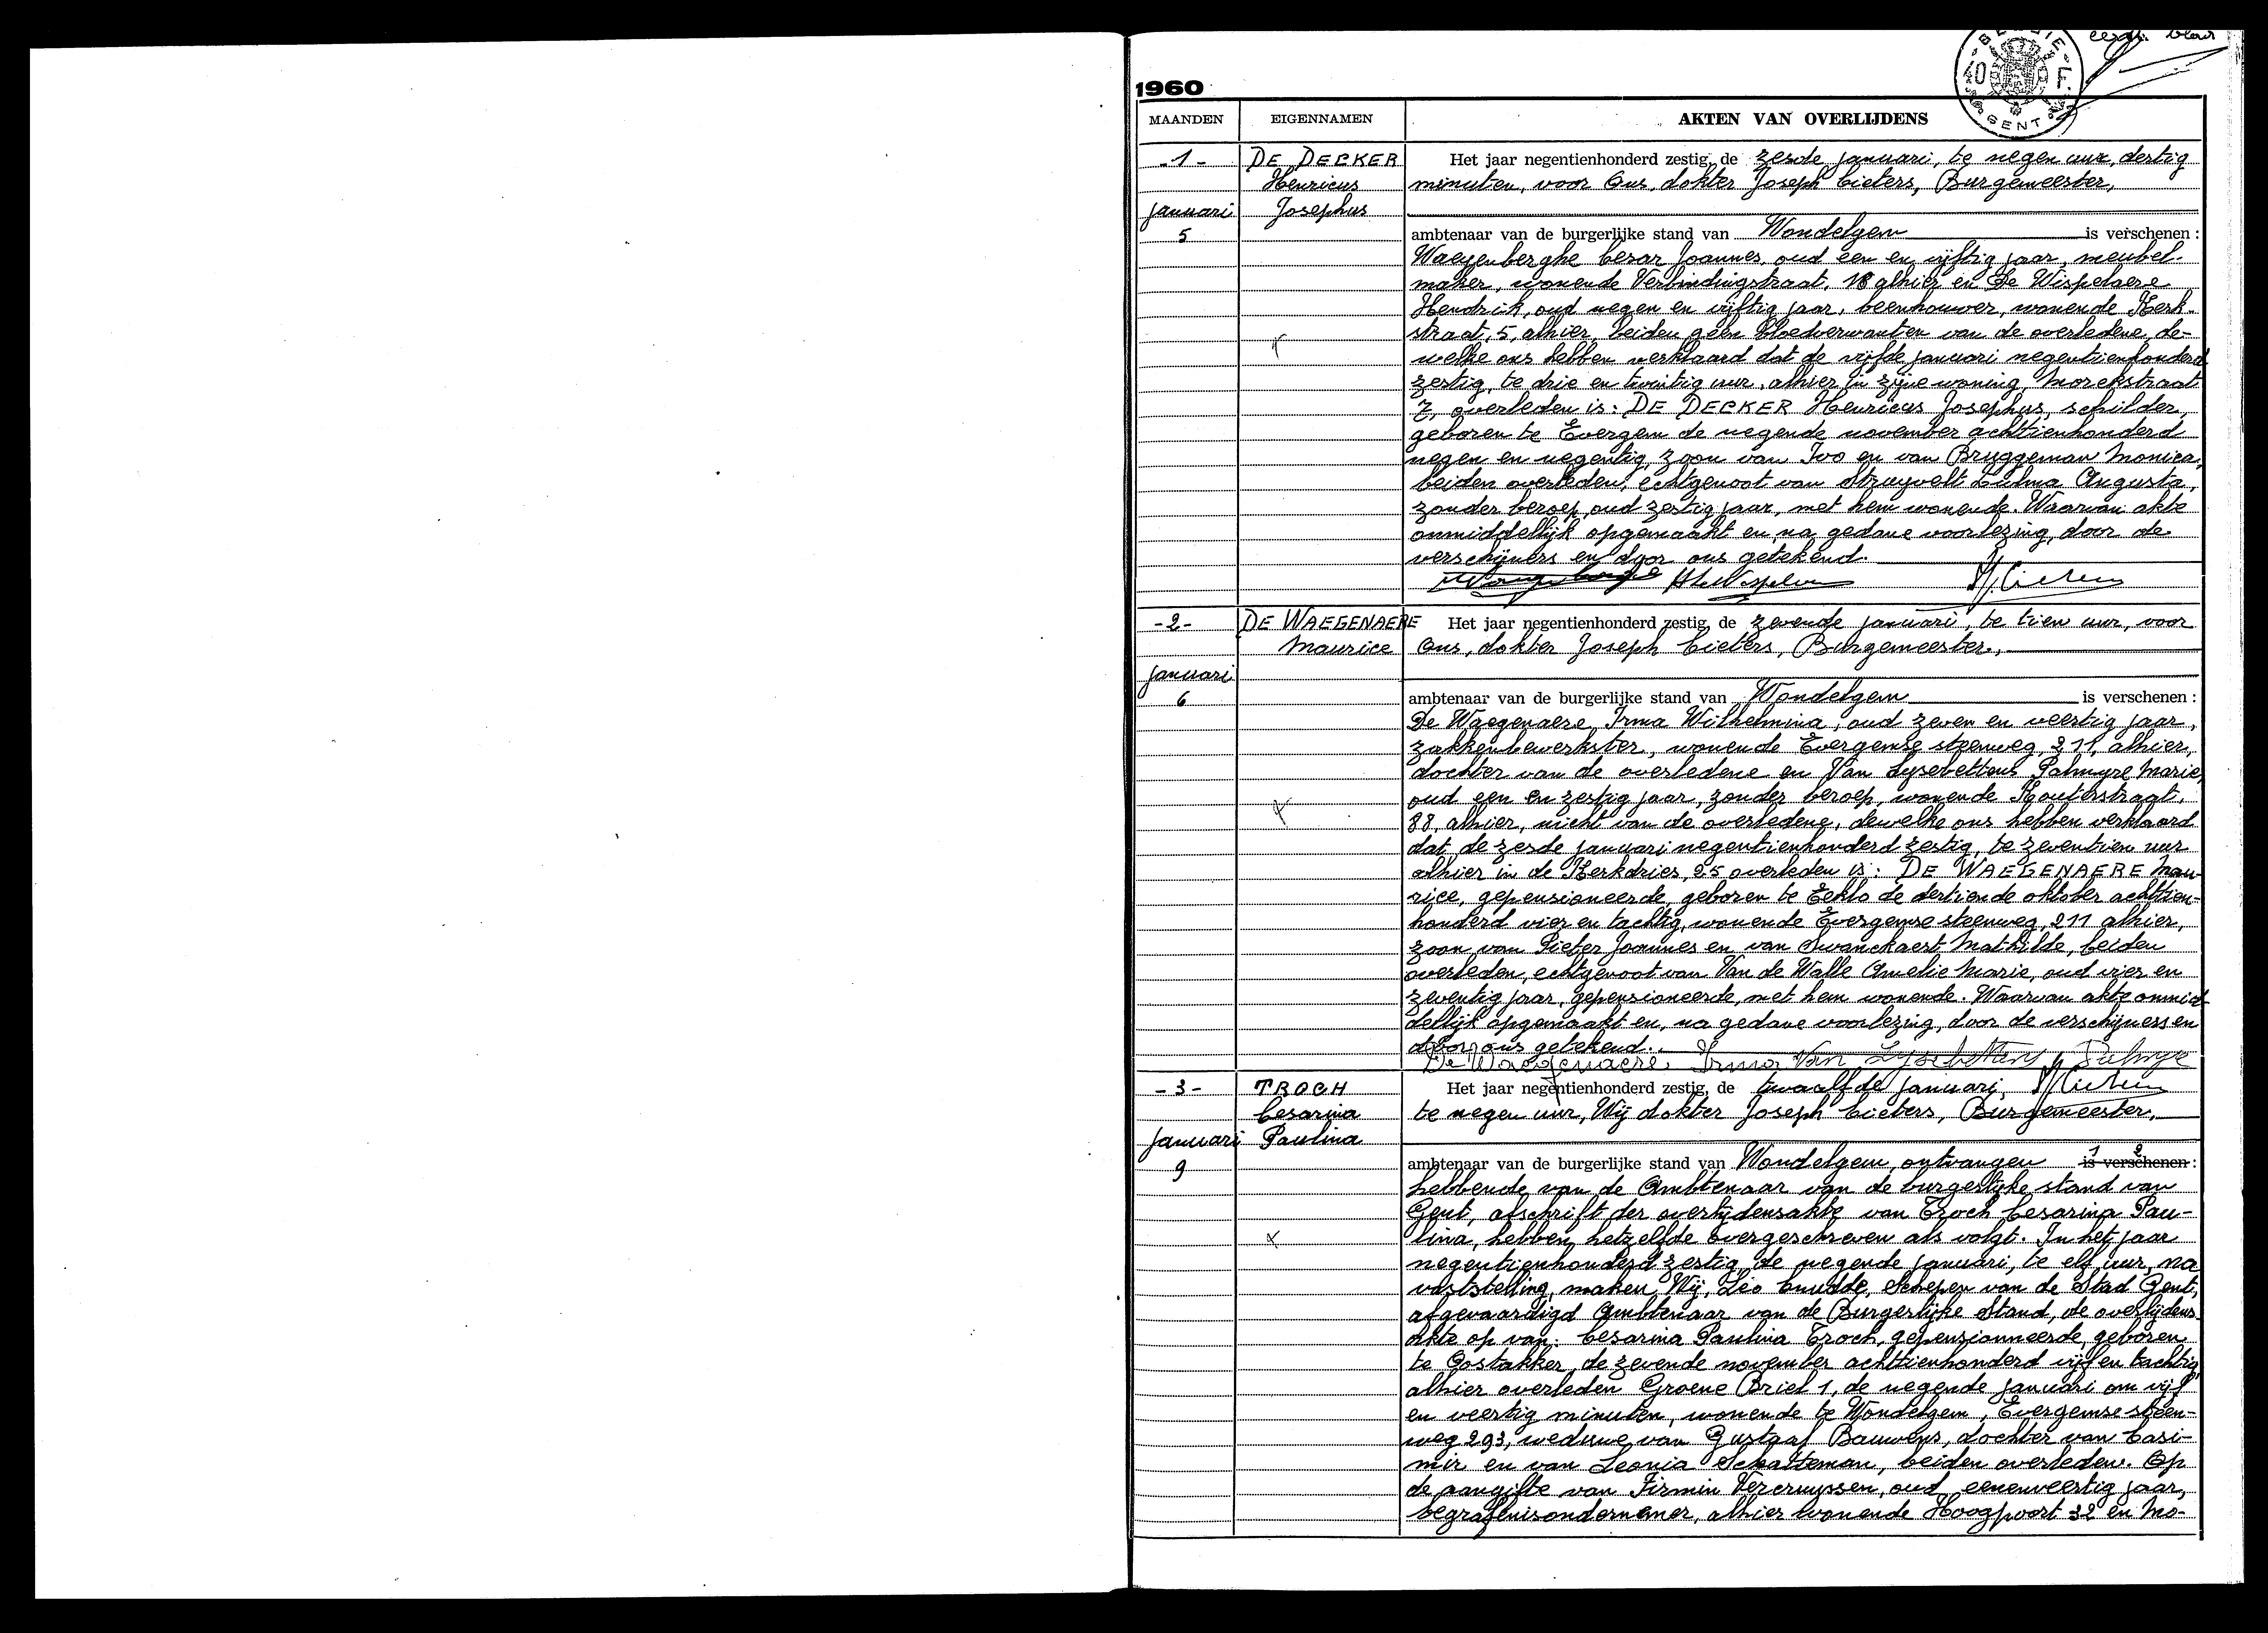 eerste blad
BELGIË
40 F.
GENT
1960
MAANDEN EIGENNAMEN AKTEN VAN OVERLIJDENS
-1-
januari
5
DE DECKER
Henricus
Josephus
Het jaar negentienhonderd zestig, de zesde januari, te negen uur, dertig
minuten, voor Ons, dokter Joseph Cieters, Burgemeester,
ambtenaar van de burgerlijke stand van Wondelgem is verschenen :
Waeyenberghe Cesar Joannes, oud een en vijftig jaar, meubel-
maker, wonende Verbindingstraat, 18 alhier en De Wispelaere
Hendrik, oud negen en vijftig jaar, beenhouwer, wonende Kerk-
straat, 5, alhier, beiden geen bloedverwanten van de overledene, de-
welke ons hebben verklaard dat de vijfde januari negentienhonderd
zestig, te drie en twintig uur, alhier in zijne woning, Morekstraat
7, overleden is: DE DECKER Henricus Josephus, schilder,
geboren te Evergem de negende november achttienhonderd
negen en negentig, zoon van Ivo en van Bruggeman Monica,
beiden overleden, echtgenoot van Struyvelt Zulma Augusta,
zonder beroep, oud zestig jaar, met hem wonende. Waarvan akte
onmiddellijk opgemaakt en, na gedane voorlezing, door de
verschijners en door ons getekend.
-2-
januari
6
DE WAEGENAERE
Maurice
Het jaar negentienhonderd zestig, de zevende januari, te tien uur, voor
Ons, dokter Joseph Cieters, Burgemeester,
ambtenaar van de burgerlijke stand van Wondelgem is verschenen :
De Waegenaere Irma Wilhelmina, oud zeven en veertig jaar,
zakkenbewerkster, wonende Evergemse steenweg, 211, alhier,
dochter van de overledene en Van Lysebettens Palmyre Marie,
oud een en zestig jaar, zonder beroep, wonende Kouterstraat,
88, alhier, nicht van de overledene, dewelke ons hebben verklaard
dat de zesde januari negentienhonderd zestig, te zeventien uur
alhier in de Kerkdries, 25 overleden is: DE WAEGENAERE Mau-
rice, gepensioneerde, geboren te Eeklo de dertiende oktober achttien-
honderd vier en tachtig, wonende Evergemse steenweg, 211 alhier,
zoon van Pieter Joannes en van Swanckaert Mathilde, beiden
overleden, echtgenoot van Van de Walle Amelie Marie, oud vier en
zeventig jaar, gepensioneerde, met hem wonende. Waarvan akte onmid-
dellijk opgemaakt en, na gedane voorlezing, door de verschijners en
door ons getekend.
De Waegenaere Irma Van Lysebettens Palmyre
-3-
januari
9
TROCH
Cesarina
Paulina
Het jaar negentienhonderd zestig, de twaalfde januari,
te negen uur, Wij dokter Joseph Cieters, Burgemeester,
ambtenaar van de burgerlijke stand van Wondelgem, ontvangen is verschenen :
hebbende van de Ambtenaar van de burgerlijke stand van
Gent, afschrift der overlijdensakte van Troch Cesarina Pau-
lina, hebben hetzelfde overgeschreven als volgt. In het jaar
negentienhonderd zestig, de negende januari, te elf uur, na
vaststelling, maken Wij, Leo Cnudde, Schepen van de Stad Gent,
afgevaardigd Ambtenaar van de Burgerlijke Stand, de overlijdens-
akte op van: Cesarina Paulina Troch, gepensionneerde, geboren
te Oostakker, de zevende november achttienhonderd vijf en tachtig,
alhier overleden Groene Briel 1, de negende januari om vijf
en veertig minuten, wonende te Wondelgem, Evergemse steen-
weg 293, weduwe van Gustaaf Bauwens, dochter van Casi-
mir en van Leonia Schatteman, beiden overleden. Op
de aangifte van Firmin Vercruyssen, oud eenenveertig jaar,
begrafenisondernemer, alhier wonende Hoogpoort 32 en Mo-